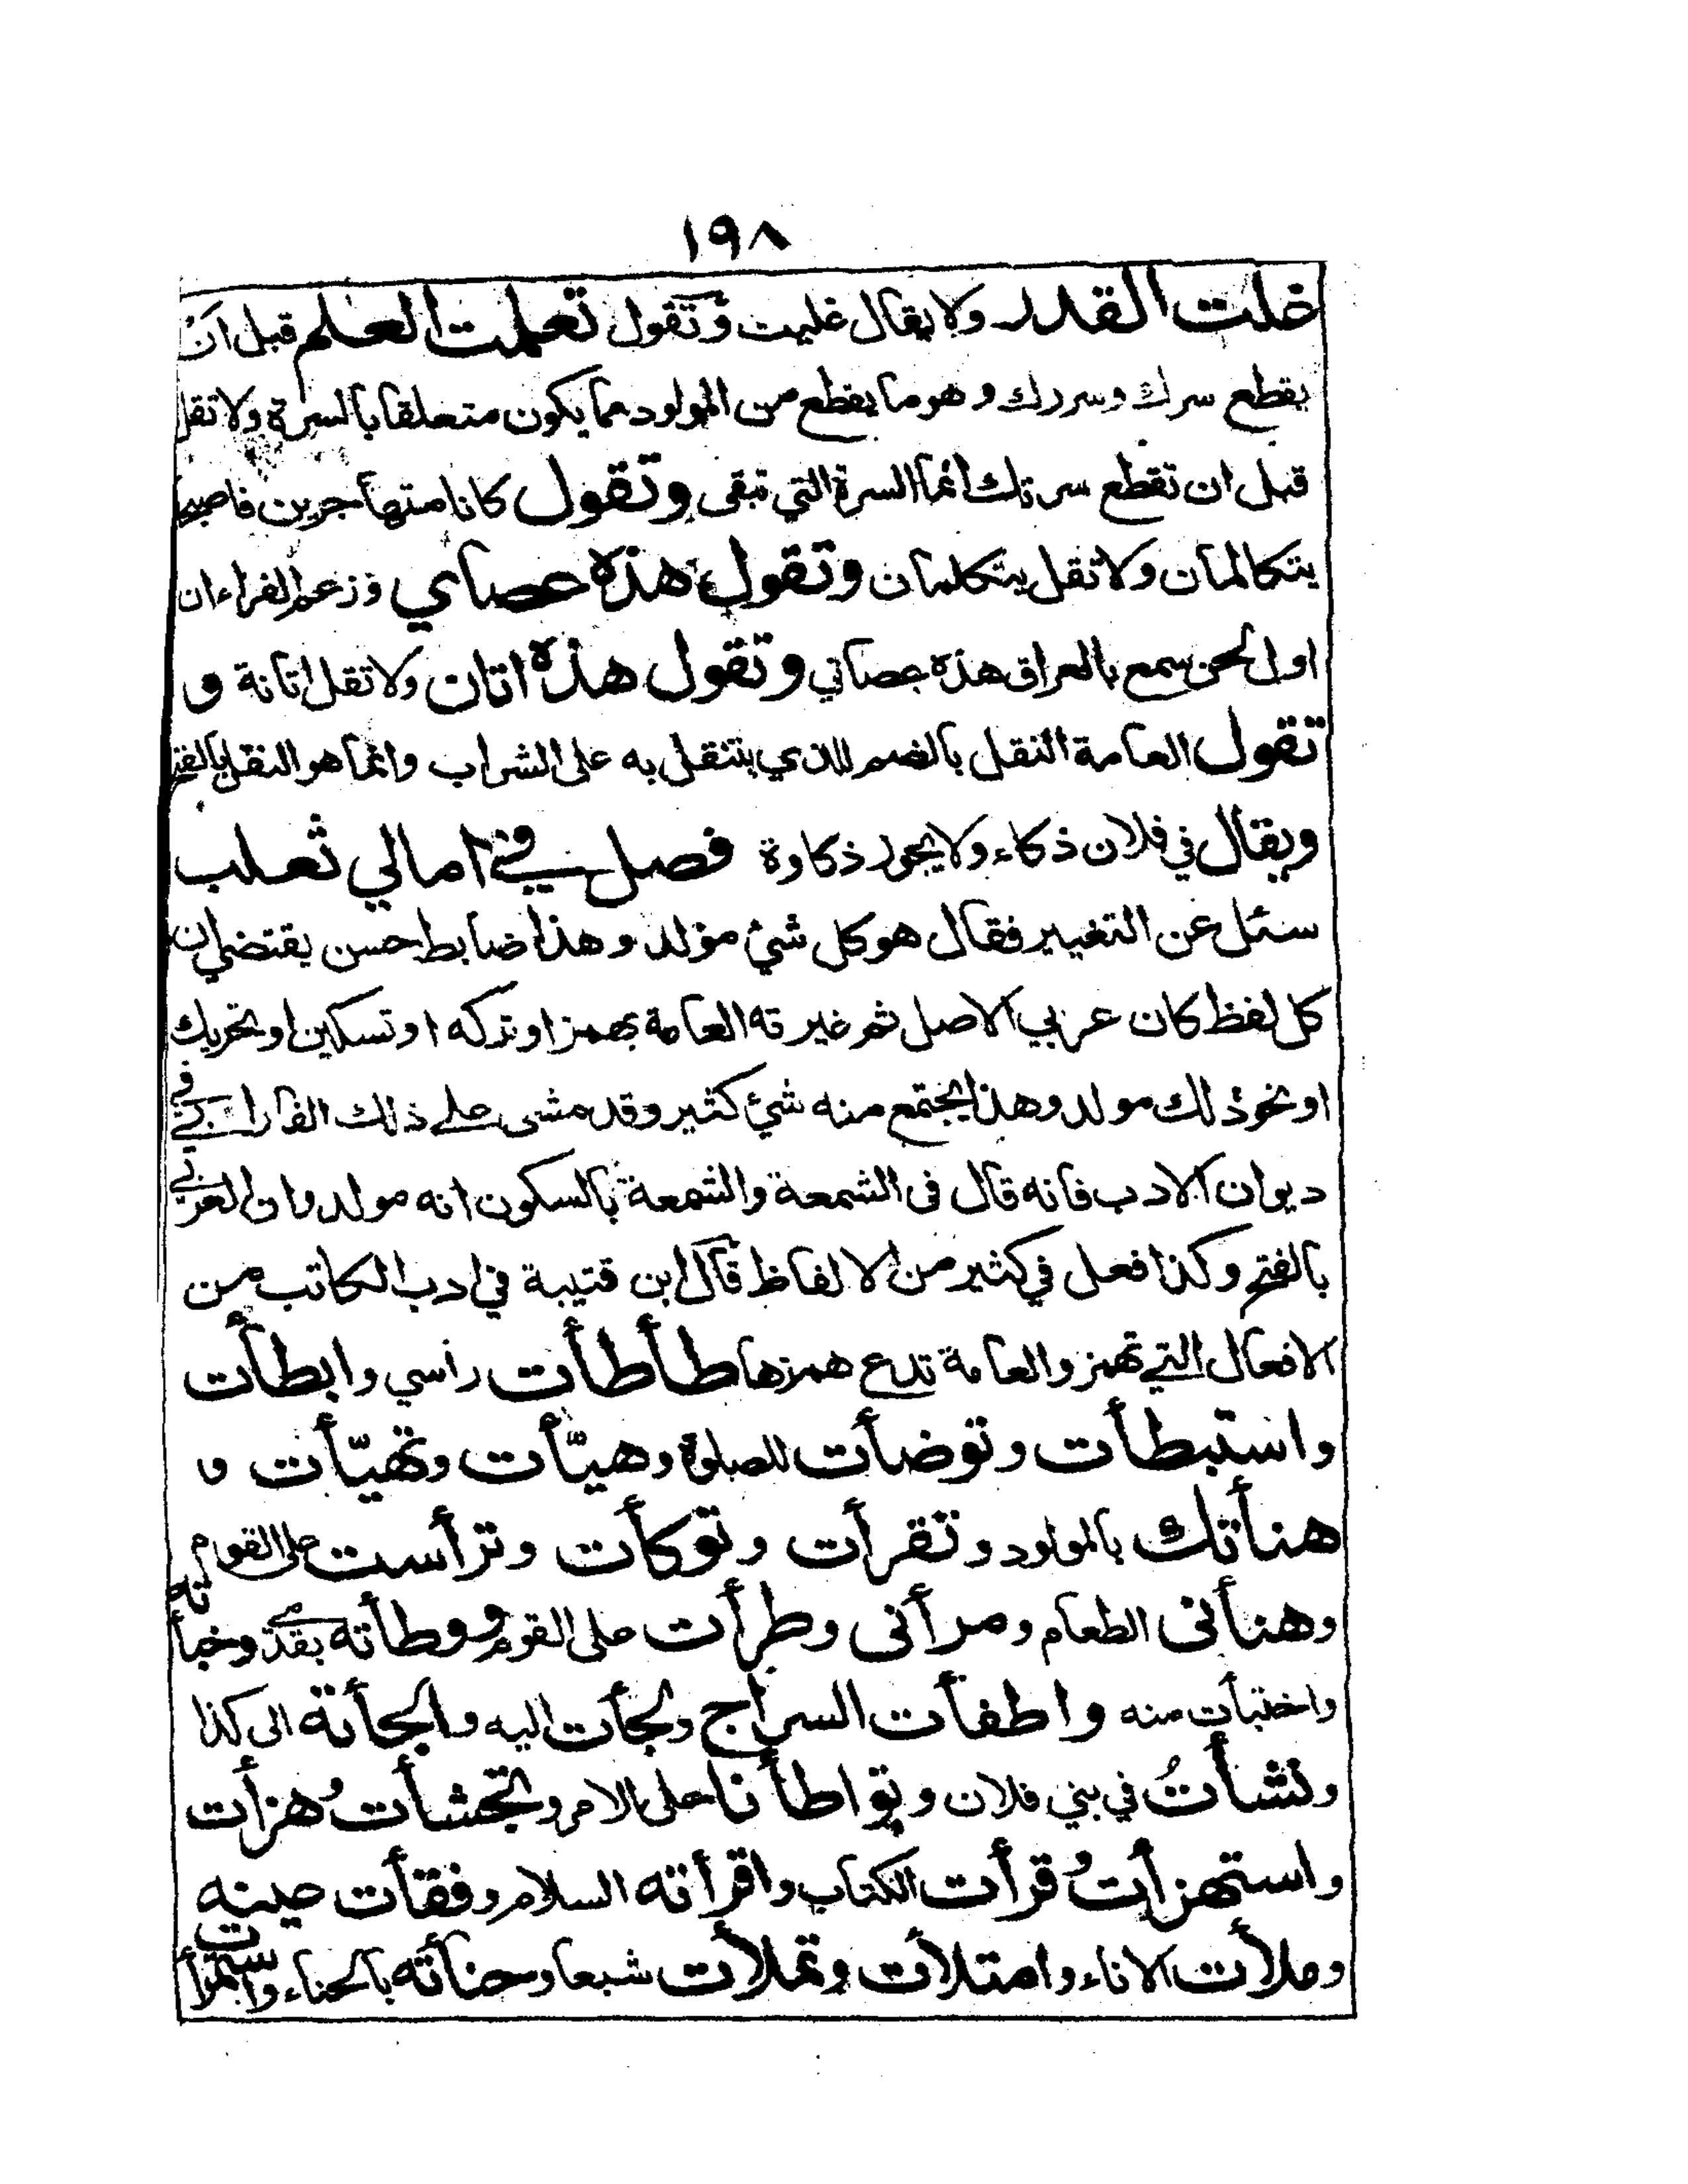 ١٩٨
غلت القدر ولا يقال غليت وتقول تعلمت العلم قبل ان
يقطع سرك وسررك وهو ما يقطع من المولود مما يكون متعلقا بالسرة ولا تقل
قبل ان تقطع سرتك انما السرة التي تبقى وتقول كانا متهاجرين فاصبحا
يتكالمان ولا تقل يتكلمان وتقول هذه عصاي وزعم الفراء ان
اول لحن سمع بالعراق هذه عصاتي وتقول هذه اتان ولا تقل اتانة و
تقول العامة النقل بالضم للذي يتنقل به على الشراب وانما هو النقل بالفتح
ويقال في فلان ذكاء ولا يجوز ذكاوة فصل في امالي ثعلب
سئل عن التغيير فقال هو كل شئ مؤلد وهذا ضابط حسن يقتضي ان
كل لفظ كان عربي الاصل ثم غيرته العامة بهمز او تركه او تسكين او تحريك
او نحو ذلك مولد وهذا يجتمع منه شئ كثير وقد مشى على ذلك الفارابي في
ديوان الادب فانه قال فى الشمعة والشمعة بالسكون انه مولد وان العربي
بالفتح وكذا فعل في كثير من الالفاظ قال ابن قتيبة في ادب الكاتب من
الافعال التي تهمز والعامة تدع همزها طأطأت رأسي وابطأت
واستبطأت وتوضأت للصلوة وهيّأت وتهيّأت و
هنأتك بالمولود وتقرأت وتوكأت وترأست على القوم
وهنأنى الطعام ومرأنى وطرأت على القوم ووطأته بقدمي وخبأته
واختبأت منه واطفأت السراج ولجأت اليه والجأته الى كذا
ونشأتُ في بني فلان وتواطأنا على الامر وتجشأتُ وهزأت
واستهزأتُ وقرأت الكتاب واقرأته السلام وفقأت عينه
وملأت الاناء وامتلأت وتملأت شبعا وحنأته بالحناء واستمرأت